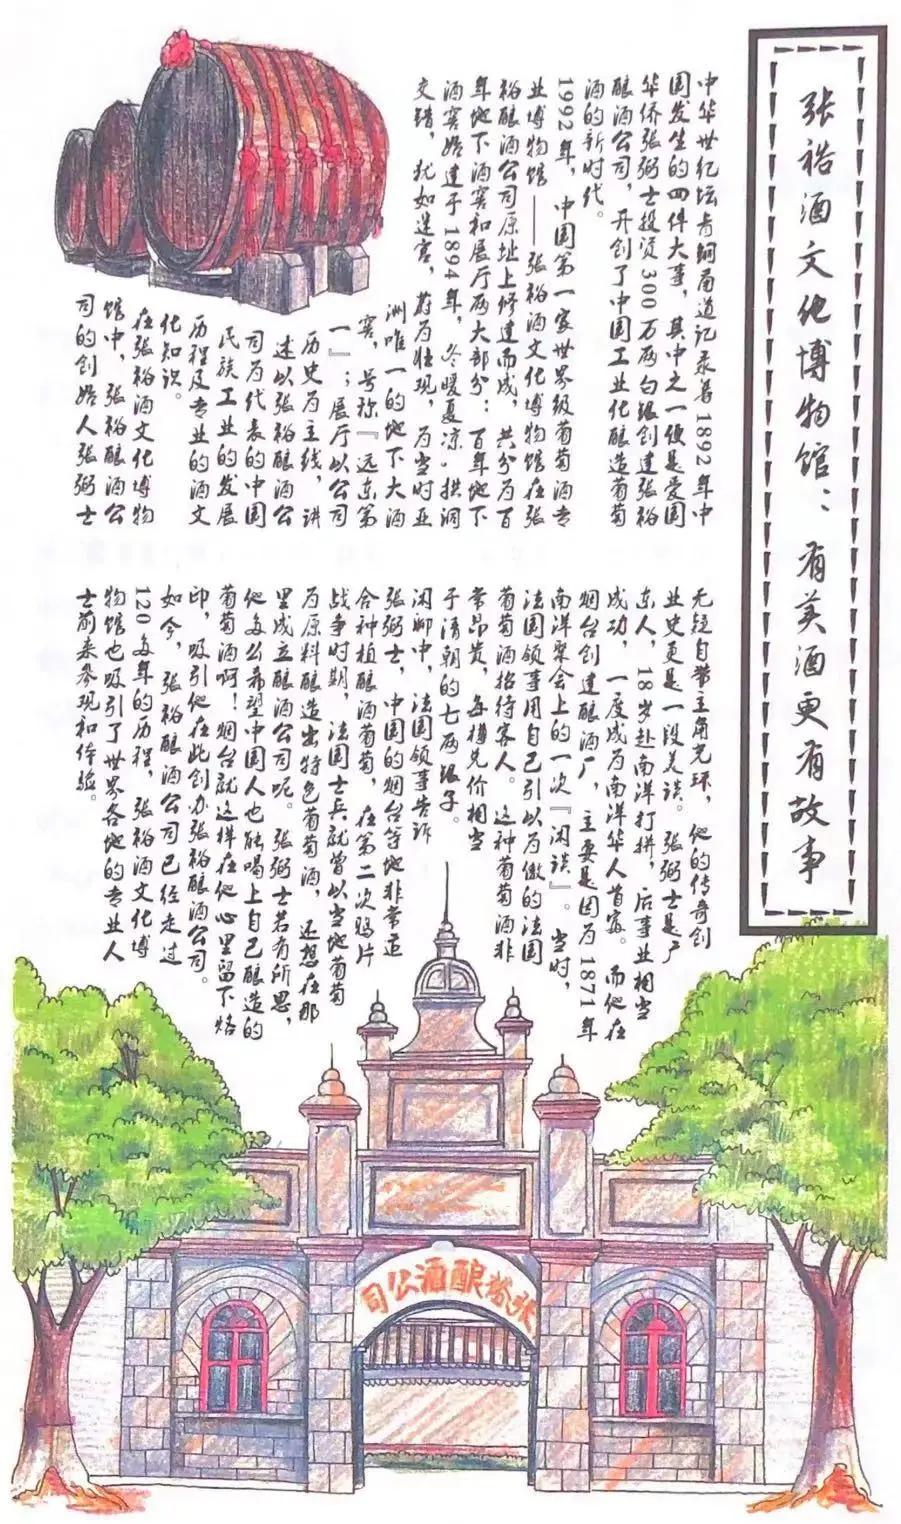 张裕酒文化博物馆：有美酒更有故事
中华世纪坛青铜甬道记录着1892年中
国发生的四件大事，其中之一便是爱国
华侨张弼士投资300万两白银创建张裕
酿酒公司，开创了中国工业化酿造葡萄
酒的新时代。
1992年，中国第一家世界级葡萄酒专
业博物馆——张裕酒文化博物馆在张
裕酿酒公司原址上修建而成，共分为百
年地下酒窖和展厅两大部分：百年地下
酒窖始建于1894年，冬暖夏凉，拱洞
交错，犹如迷宫，蔚为壮观，为当时亚
洲唯一的地下大酒
窖，号称『远东第
一』；展厅以公司
历史为主线，讲
述以张裕酿酒公
司为代表的中国
民族工业的发展
历程及专业的酒文
化知识。
在张裕酒文化博物
馆中，张裕酿酒公
司的创始人张弼士
无疑自带主角光环，他的传奇创
业史更是一段美谈。张弼士是广
东人，18岁赴南洋打拼，后事业相当
成功，一度成为南洋华人首富。而他在
烟台创建酿酒厂，主要是因为1871年
南洋宴会上的一次『闲谈』。当时，
法国领事用自己引以为傲的法国
葡萄酒招待客人。这种葡萄酒非
常昂贵，每樽兑价相当
于清朝的七两银子。
闲聊中，法国领事告诉
张弼士，中国的烟台等地非常适
合种植酿酒葡萄，在第二次鸦片
战争时期，法国士兵就曾以当地葡萄
为原料酿造出特色葡萄酒，还想在那
里成立酿酒公司呢。张弼士若有所思，
他多么希望中国人也能喝上自己酿造的
葡萄酒啊！烟台就这样在他心里留下烙
印，吸引他在此创办张裕酿酒公司。
如今，张裕酿酒公司已经走过
120多年的历程，张裕酒文化博
物馆也吸引了世界各地的专业人
士前来参观和体验。
张裕酿酒公司